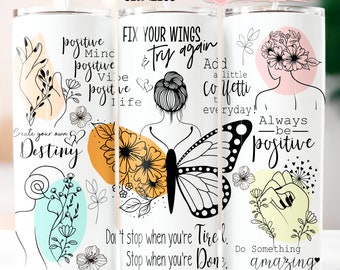 positive
Mind
positive
Vibe
positive
life
Create your own
Destiny
FIX YOUR WINGS
& Try again
Add
a little
Confetti
to
everyday!
Don't stop when you're Tired
Stop when you're Done
Always
be
positive
Do Something
amazing